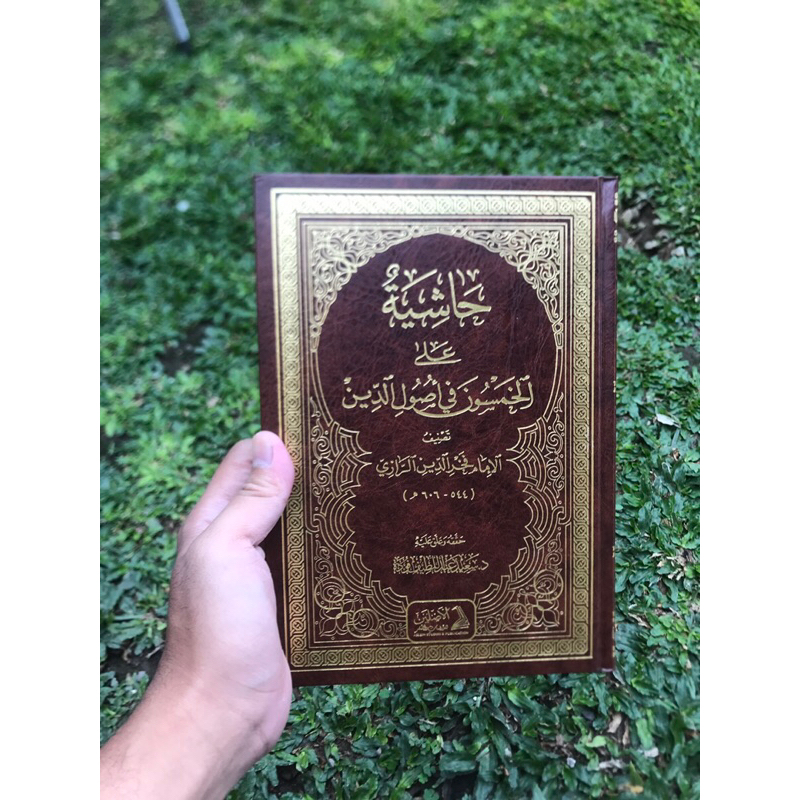 حَاشِيَةٌ
عَلَى
الخَمْسُونَ فِي أُصُولِ الدِّينِ
تَصْنِيفُ
الإِمَام فَخْرِ الدِّينِ الرَّازِي
( ٥٤٤ - ٦٠٦ هـ )
حَقَّقَهُ وَعَلَّقَ عَلَيْهِ
د. سعيد عبد اللطيف فودة